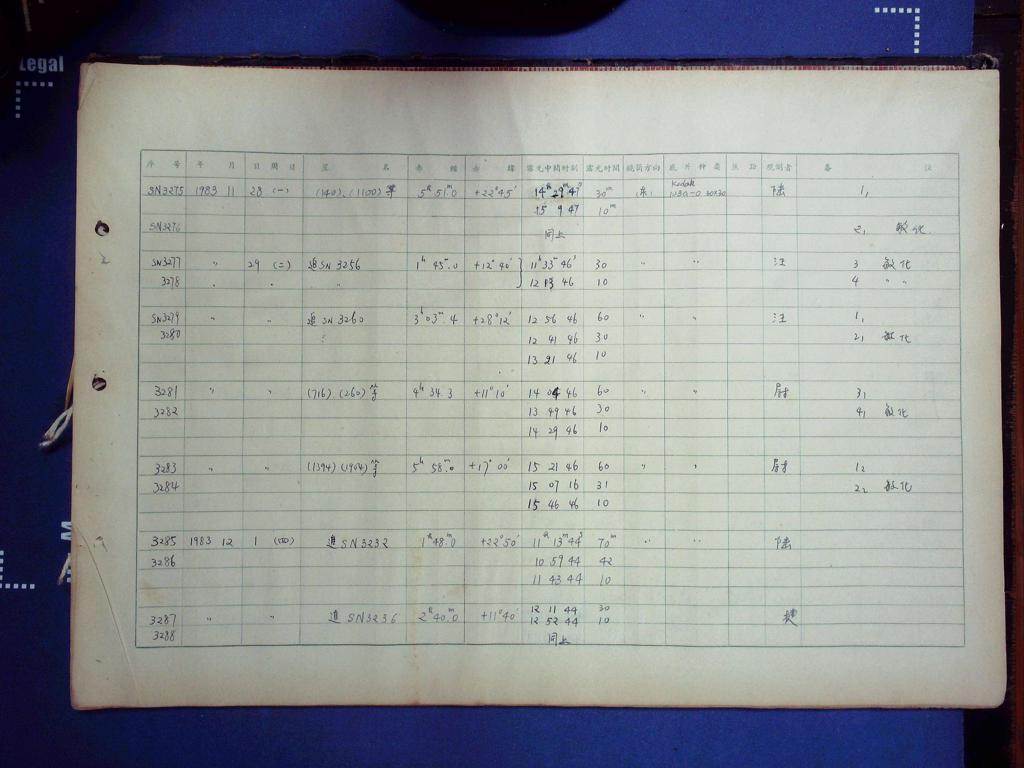 Legal
序 号 年 月 日 周 日 星 名 赤 经 赤 纬 露光中间时刻 露光时间 镜筒方向 底 片 种 类 观测者 备 注
SN3275 1983 11 28 (一) (140), (1100) 等 5h 51m.0 +22°45′ 14h 29m 47s 30m (东) Kodak 陆 1,
15 9 47 10m
SN3276 同上 2, 敏化
SN3277 〃 29 (二) 追SN 3256 1h 45m.0 +12°40′ 11h 33m 46s 30 〃 〃 汪 3 敏化
3278 〃 〃 〃 12 13 46 10 4 〃 〃
SN3279 〃 〃 追 SN 3260 3h 03m.4 +28°12′ 12 56 46 60 〃 〃 汪 1,
3280 12 41 46 30 2, 敏化
13 21 46 10
3281 〃 〃 (716) (260) 等 4h 34.3 +11°10′ 14 04 46 60 〃 〃 3,
3282 13 49 46 30 4, 敏化
14 29 46 10
3283 〃 〃 (1394) (1904) 等 5h 58m.0 +17°00′ 15 21 46 60 〃 〃 1,
3284 15 07 16 31 2, 敏化
15 46 46 10
3285 1983 12 1 (四) 追 SN3232 1h 48m.0 +22°50′ 11h 13m 44s 70m 〃 〃 陆
3286 10 59 44 42
11 43 44 10
12 11 44 30
3287 〃 〃 追 SN3236 2h 40m.0 +11°40′ 12 52 44 10
3288 同上